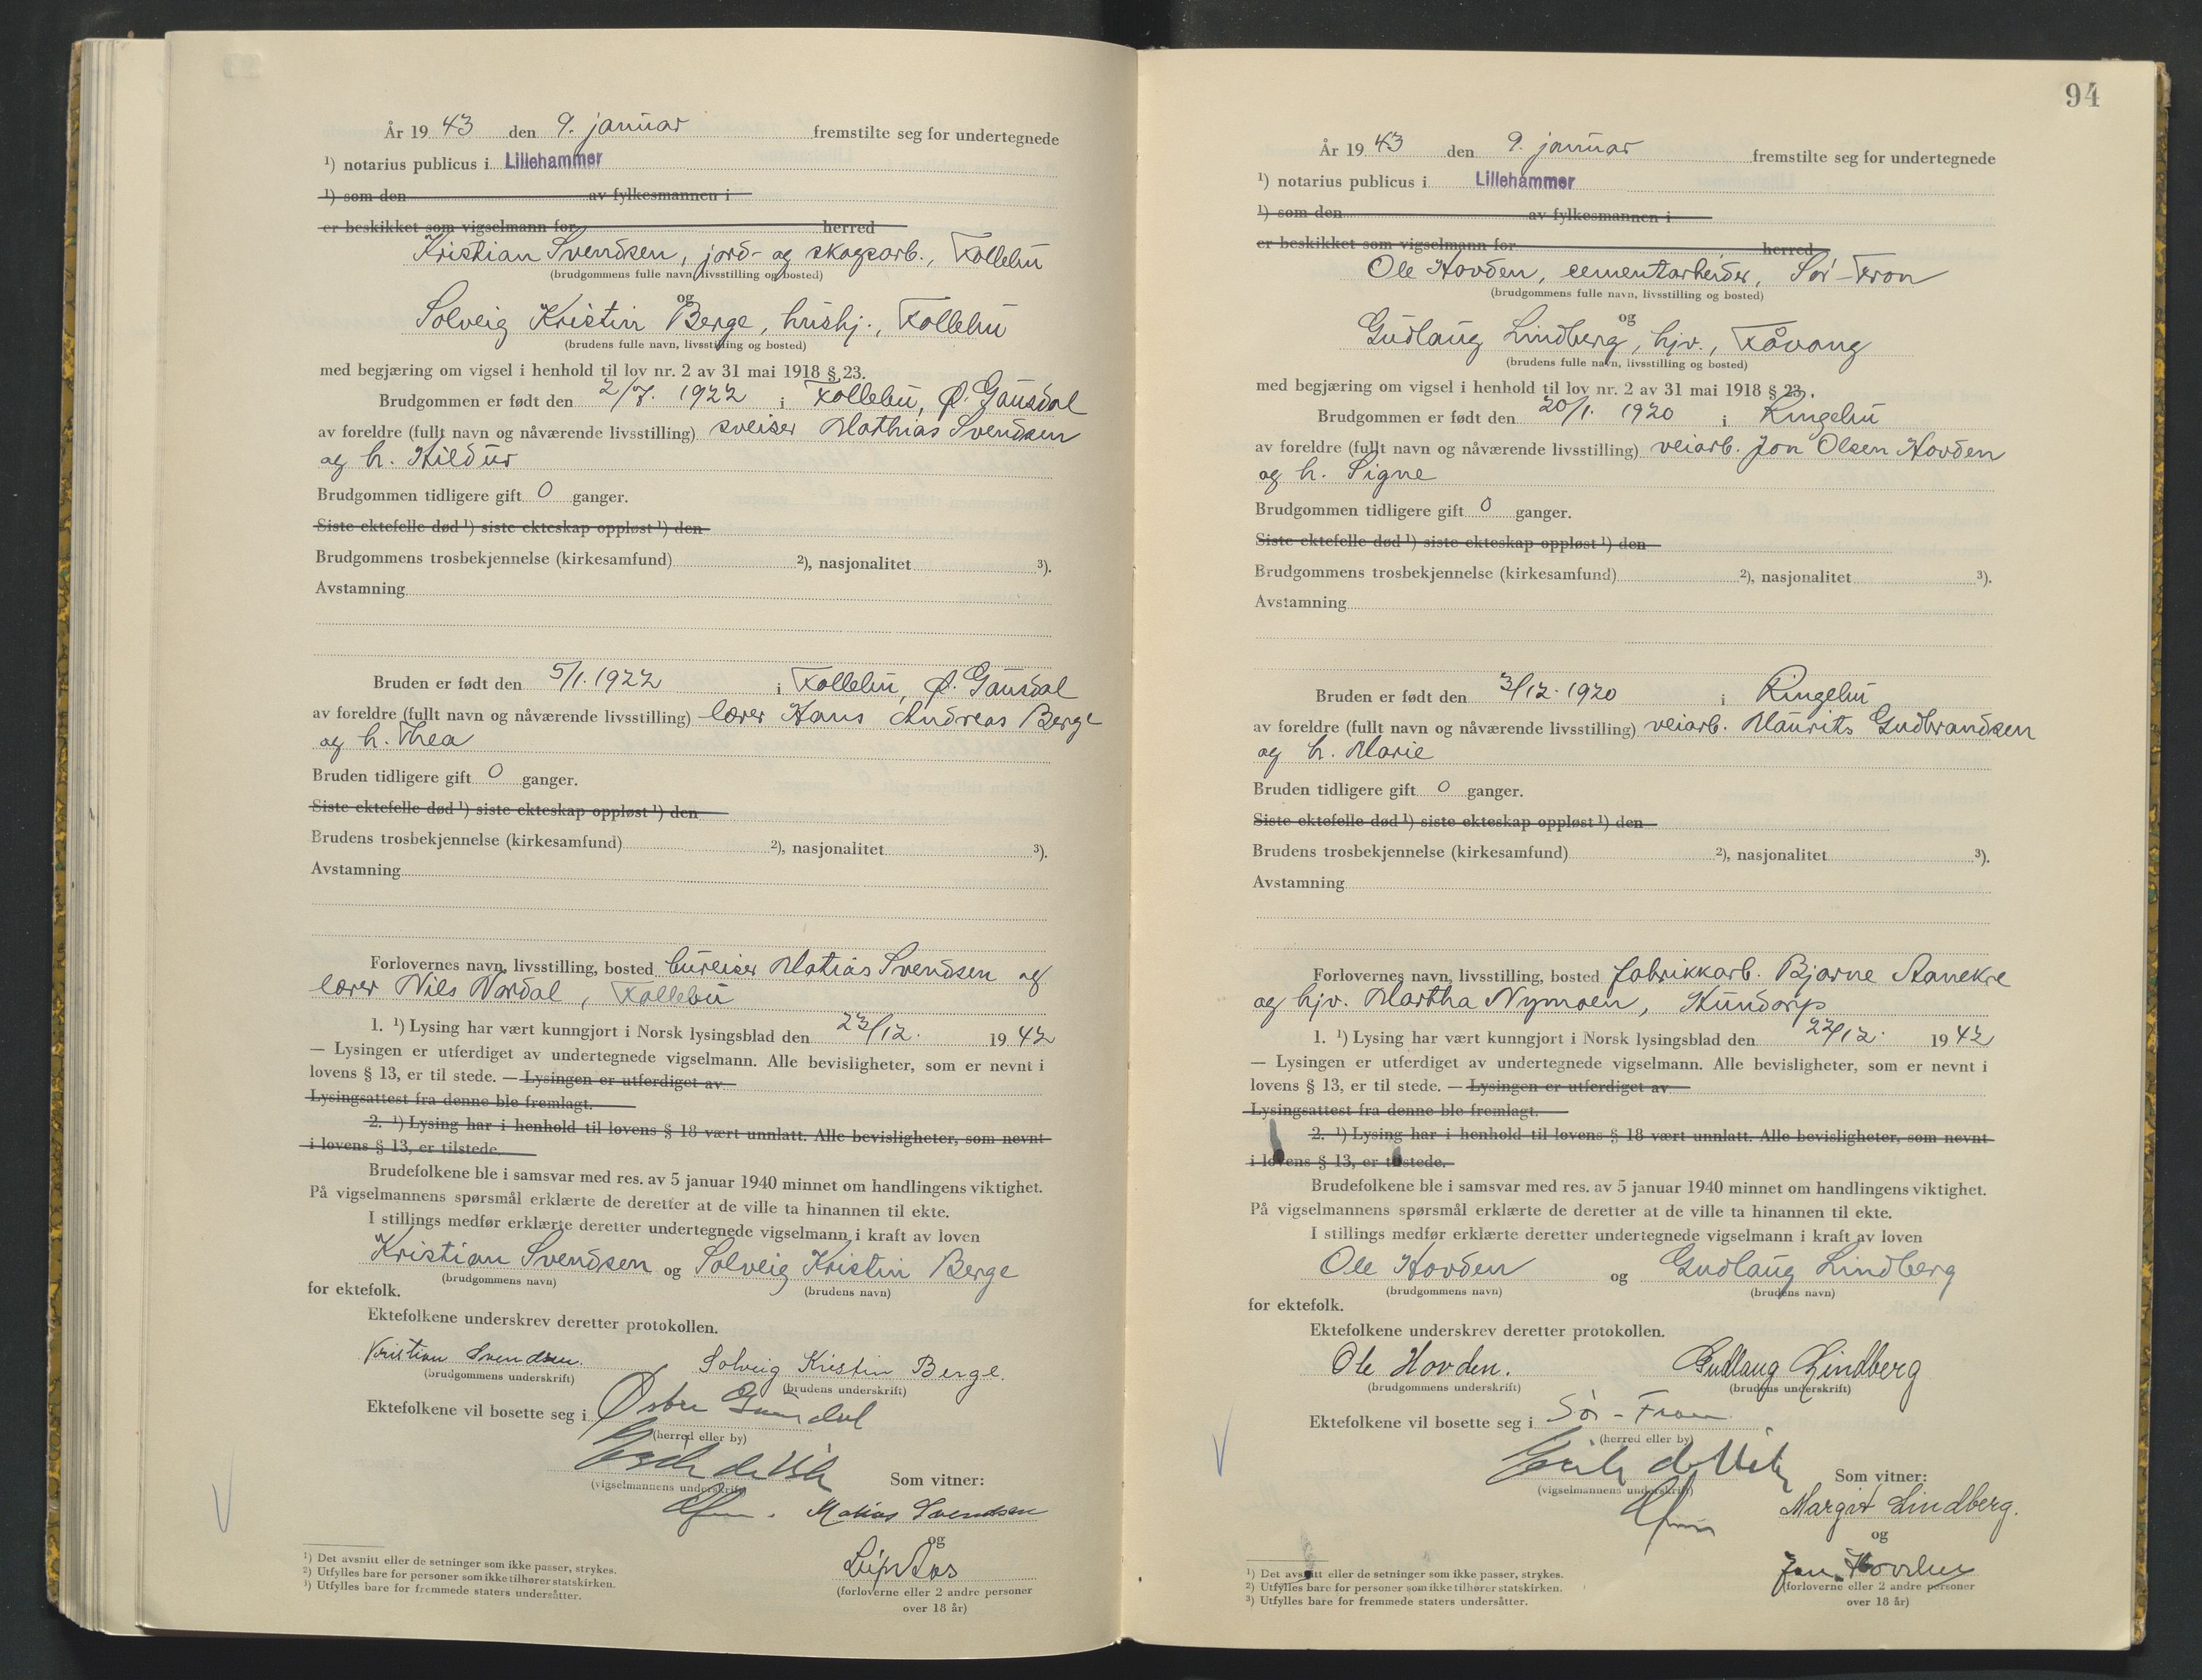 År 1943 den 9. januar fremstilte seg for undertegnede
¹) notarius publicus i Lillehammer
¹) som den av fylkesmannen i
er beskikket som vigselmann for herred
Kristian Svendsen, jord- og skogsarb., Follebu
(brudgommens fulle navn, livsstilling og bosted)
og
Solveig Kristin Berge, hushj., Follebu
(brudens fulle navn, livsstilling og bosted)
med begjæring om vigsel i henhold til lov nr. 2 av 31 mai 1918 § 23.
Brudgommen er født den 2/7. 1922 i Follebu, Ø. Gausdal
av foreldre (fullt navn og nåværende livsstilling) sveiser Mathias Svendsen
og h. Hildur
Brudgommen tidligere gift 0 ganger.
Siste ektefelle død ¹) siste ekteskap oppløst ¹) den
Brudgommens trosbekjennelse (kirkesamfund) ²), nasjonalitet ³).
Avstamning
Bruden er født den 5/1. 1922 i Follebu, Ø. Gausdal
av foreldre (fullt navn og nåværende livsstilling) lærer Hans Andreas Berge
og h. Thea
Bruden tidligere gift 0 ganger.
Siste ektefelle død ¹) siste ekteskap oppløst ¹) den
Brudens trosbekjennelse (kirkesamfund) ²), nasjonalitet ³).
Avstamning
Forlovernes navn, livsstilling, bosted bureiser Matias Svendsen og
lærer Nils Nordal, Follebu
1. ¹) Lysing har vært kunngjort i Norsk lysingsblad den 23/12. 1942
— Lysingen er utferdiget av undertegnede vigselmann. Alle bevisligheter, som er nevnt i
lovens § 13, er til stede. — Lysingen er utferdiget av
Lysingsattest fra denne ble fremlagt.
2. ¹) Lysing har i henhold til lovens § 18 vært unnlatt. Alle bevisligheter, som nevnt
i lovens § 13, er tilstede.
Brudefolkene ble i samsvar med res. av 5 januar 1940 minnet om handlingens viktighet.
På vigselmannens spørsmål erklærte de deretter at de ville ta hinannen til ekte.
I stillings medfør erklærte deretter undertegnede vigselmann i kraft av loven
Kristian Svendsen og Solveig Kristin Berge
(brudgommens navn) (brudens navn)
for ektefolk.
Ektefolkene underskrev deretter protokollen.
Kristian Svendsen. Solveig Kristin Berge.
(brudgommens underskrift) (brudens underskrift)
Ektefolkene vil bosette seg i Østre Gausdal
(herred eller by)
Som vitner:
(vigselmannens underskrift)
Matias Svendsen
og
(forloverne eller 2 andre personer
over 18 år)
¹) Det avsnitt eller de setninger som ikke passer, strykes.
²) Utfylles bare for personer som ikke tilhører statskirken.
³) Utfylles bare for fremmede staters undersåtter.
94
År 1943 den 9. januar fremstilte seg for undertegnede
¹) notarius publicus i Lillehammer
¹) som den av fylkesmannen i
er beskikket som vigselmann for herred
Ole Hovden, cementarbeider, Sør-Fron
(brudgommens fulle navn, livsstilling og bosted)
og
Gudlaug Lindberg, hjv., Fåvang
(brudens fulle navn, livsstilling og bosted)
med begjæring om vigsel i henhold til lov nr. 2 av 31 mai 1918 § 23.
Brudgommen er født den 20/1. 1920 i Ringebu
av foreldre (fullt navn og nåværende livsstilling) veiarb. Jon Olsen Hovden
og h. Signe
Brudgommen tidligere gift 0 ganger.
Siste ektefelle død ¹) siste ekteskap oppløst ¹) den
Brudgommens trosbekjennelse (kirkesamfund) ²), nasjonalitet ³).
Avstamning
Bruden er født den 3/12. 1920 i Ringebu
av foreldre (fullt navn og nåværende livsstilling) veiarb. Maurits Gudbrandsen
og h. Marie
Bruden tidligere gift 0 ganger.
Siste ektefelle død ¹) siste ekteskap oppløst ¹) den
Brudens trosbekjennelse (kirkesamfund) ²), nasjonalitet ³).
Avstamning
Forlovernes navn, livsstilling, bosted fabrikkarb. Bjarne Aanekre
og hjv. Martha Nymoen, Hundorp
1. ¹) Lysing har vært kunngjort i Norsk lysingsblad den 22/12. 1942
— Lysingen er utferdiget av undertegnede vigselmann. Alle bevisligheter, som er nevnt i
lovens § 13, er til stede. — Lysingen er utferdiget av
Lysingsattest fra denne ble fremlagt.
2. ¹) Lysing har i henhold til lovens § 18 vært unnlatt. Alle bevisligheter, som nevnt
i lovens § 13, er tilstede.
Brudefolkene ble i samsvar med res. av 5 januar 1940 minnet om handlingens viktighet.
På vigselmannens spørsmål erklærte de deretter at de ville ta hinannen til ekte.
I stillings medfør erklærte deretter undertegnede vigselmann i kraft av loven
Ole Hovden og Gudlaug Lindberg
(brudgommens navn) (brudens navn)
for ektefolk.
Ektefolkene underskrev deretter protokollen.
Ole Hovden. Gudlaug Lindberg
(brudgommens underskrift) (brudens underskrift)
Ektefolkene vil bosette seg i Sør-Fron
(herred eller by)
Som vitner:
(vigselmannens underskrift)
Margit Lindberg.
og
Jon Hovden
(forloverne eller 2 andre personer
over 18 år)
¹) Det avsnitt eller de setninger som ikke passer, strykes.
²) Utfylles bare for personer som ikke tilhører statskirken.
³) Utfylles bare for fremmede staters undersåtter.